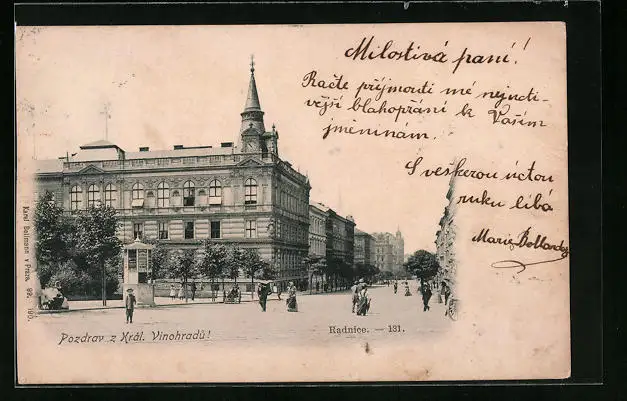 Milostivá paní!
Račte přijmouti mé nejucti-
vější blahopřání k Vašim
jmeninám.
S veškerou úctou
ruku líbá
Marie
Karel Bellmann v Praze. 99. 190.
Pozdrav z Král. Vinohradů!
Radnice. — 131.